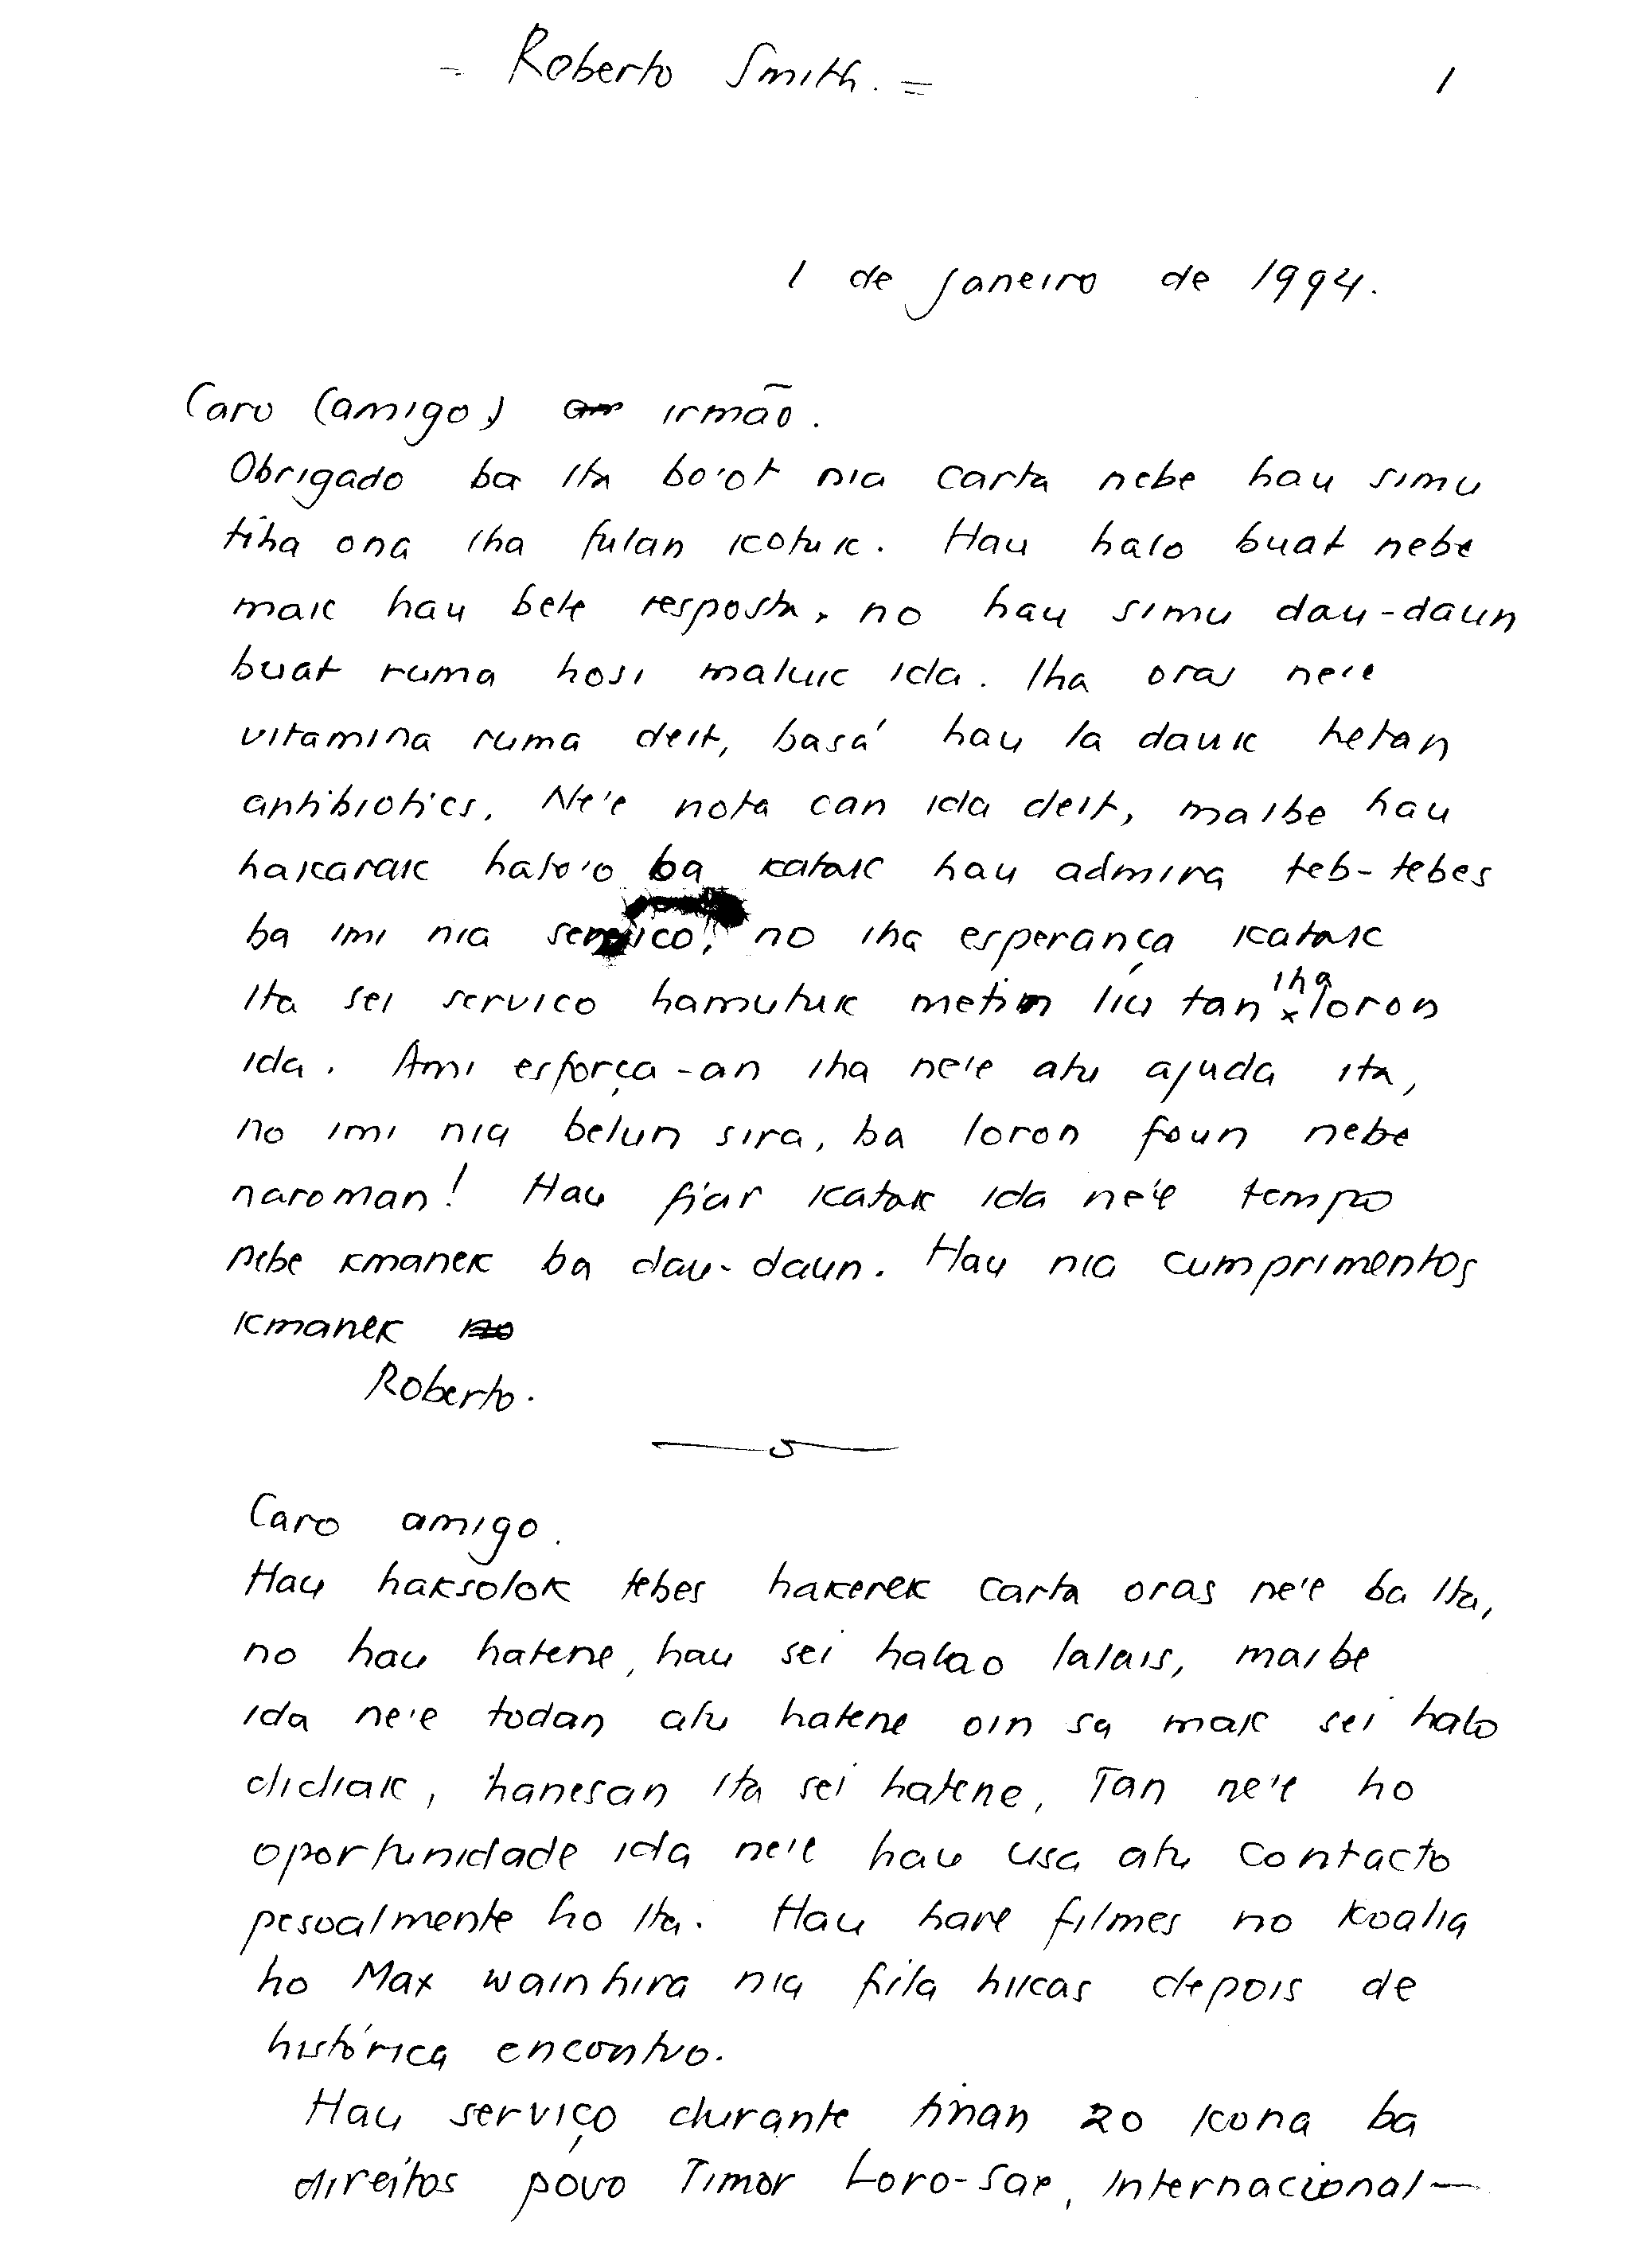 = Roberto Smith. =
1
1 de janeiro de 1994.
Caro (amigo) irmão.
Obrigado ba Ita bo'ot nia carta nebe hau simu
tiha ona iha fulan kotuk. Hau halo buat nebe
mak hau bele resposta, no hau simu dau-daun
buat ruma hosi maluk ida. Iha oras ne'e
vitamina ruma deit, basá hau la dauk hetan
antibiotics. Ne'e nota can ida deit, maibe hau
hakarak halo'o ba katak hau admira teb-tebes
ba imi nia servico, no iha esperança katak
Ita sei servico hamutuk metin liu tan iha loron
ida. Ami esforça-an iha ne'e atu ajuda ita,
no imi nia belun sira, ba loron foun nebe
naroman! Hau fiar katak ida ne'e tempo
nebe kmanek ba dau-daun. Hau nia cumprimentos
kmanek no
Roberto.
Caro amigo.
Hau haksolok tebes hakerek carta oras ne'e ba Ita,
no hau hatene, hau sei halao lalais, maibe
ida ne'e todan atu hatene oin sa mak sei halo
didiak, hanesan Ita sei hatene, Tan ne'e ho
oportunidade ida ne'e hau usa atu contacto
pesoalmente ho Ita. Hau hare filmes no koalia
ho Max wainhira nia fila hikas depois de
histórica encontro.
Hau serviço durante tinan 20 kona ba
direitos póvo Timor Loro-Sae, Internacional—